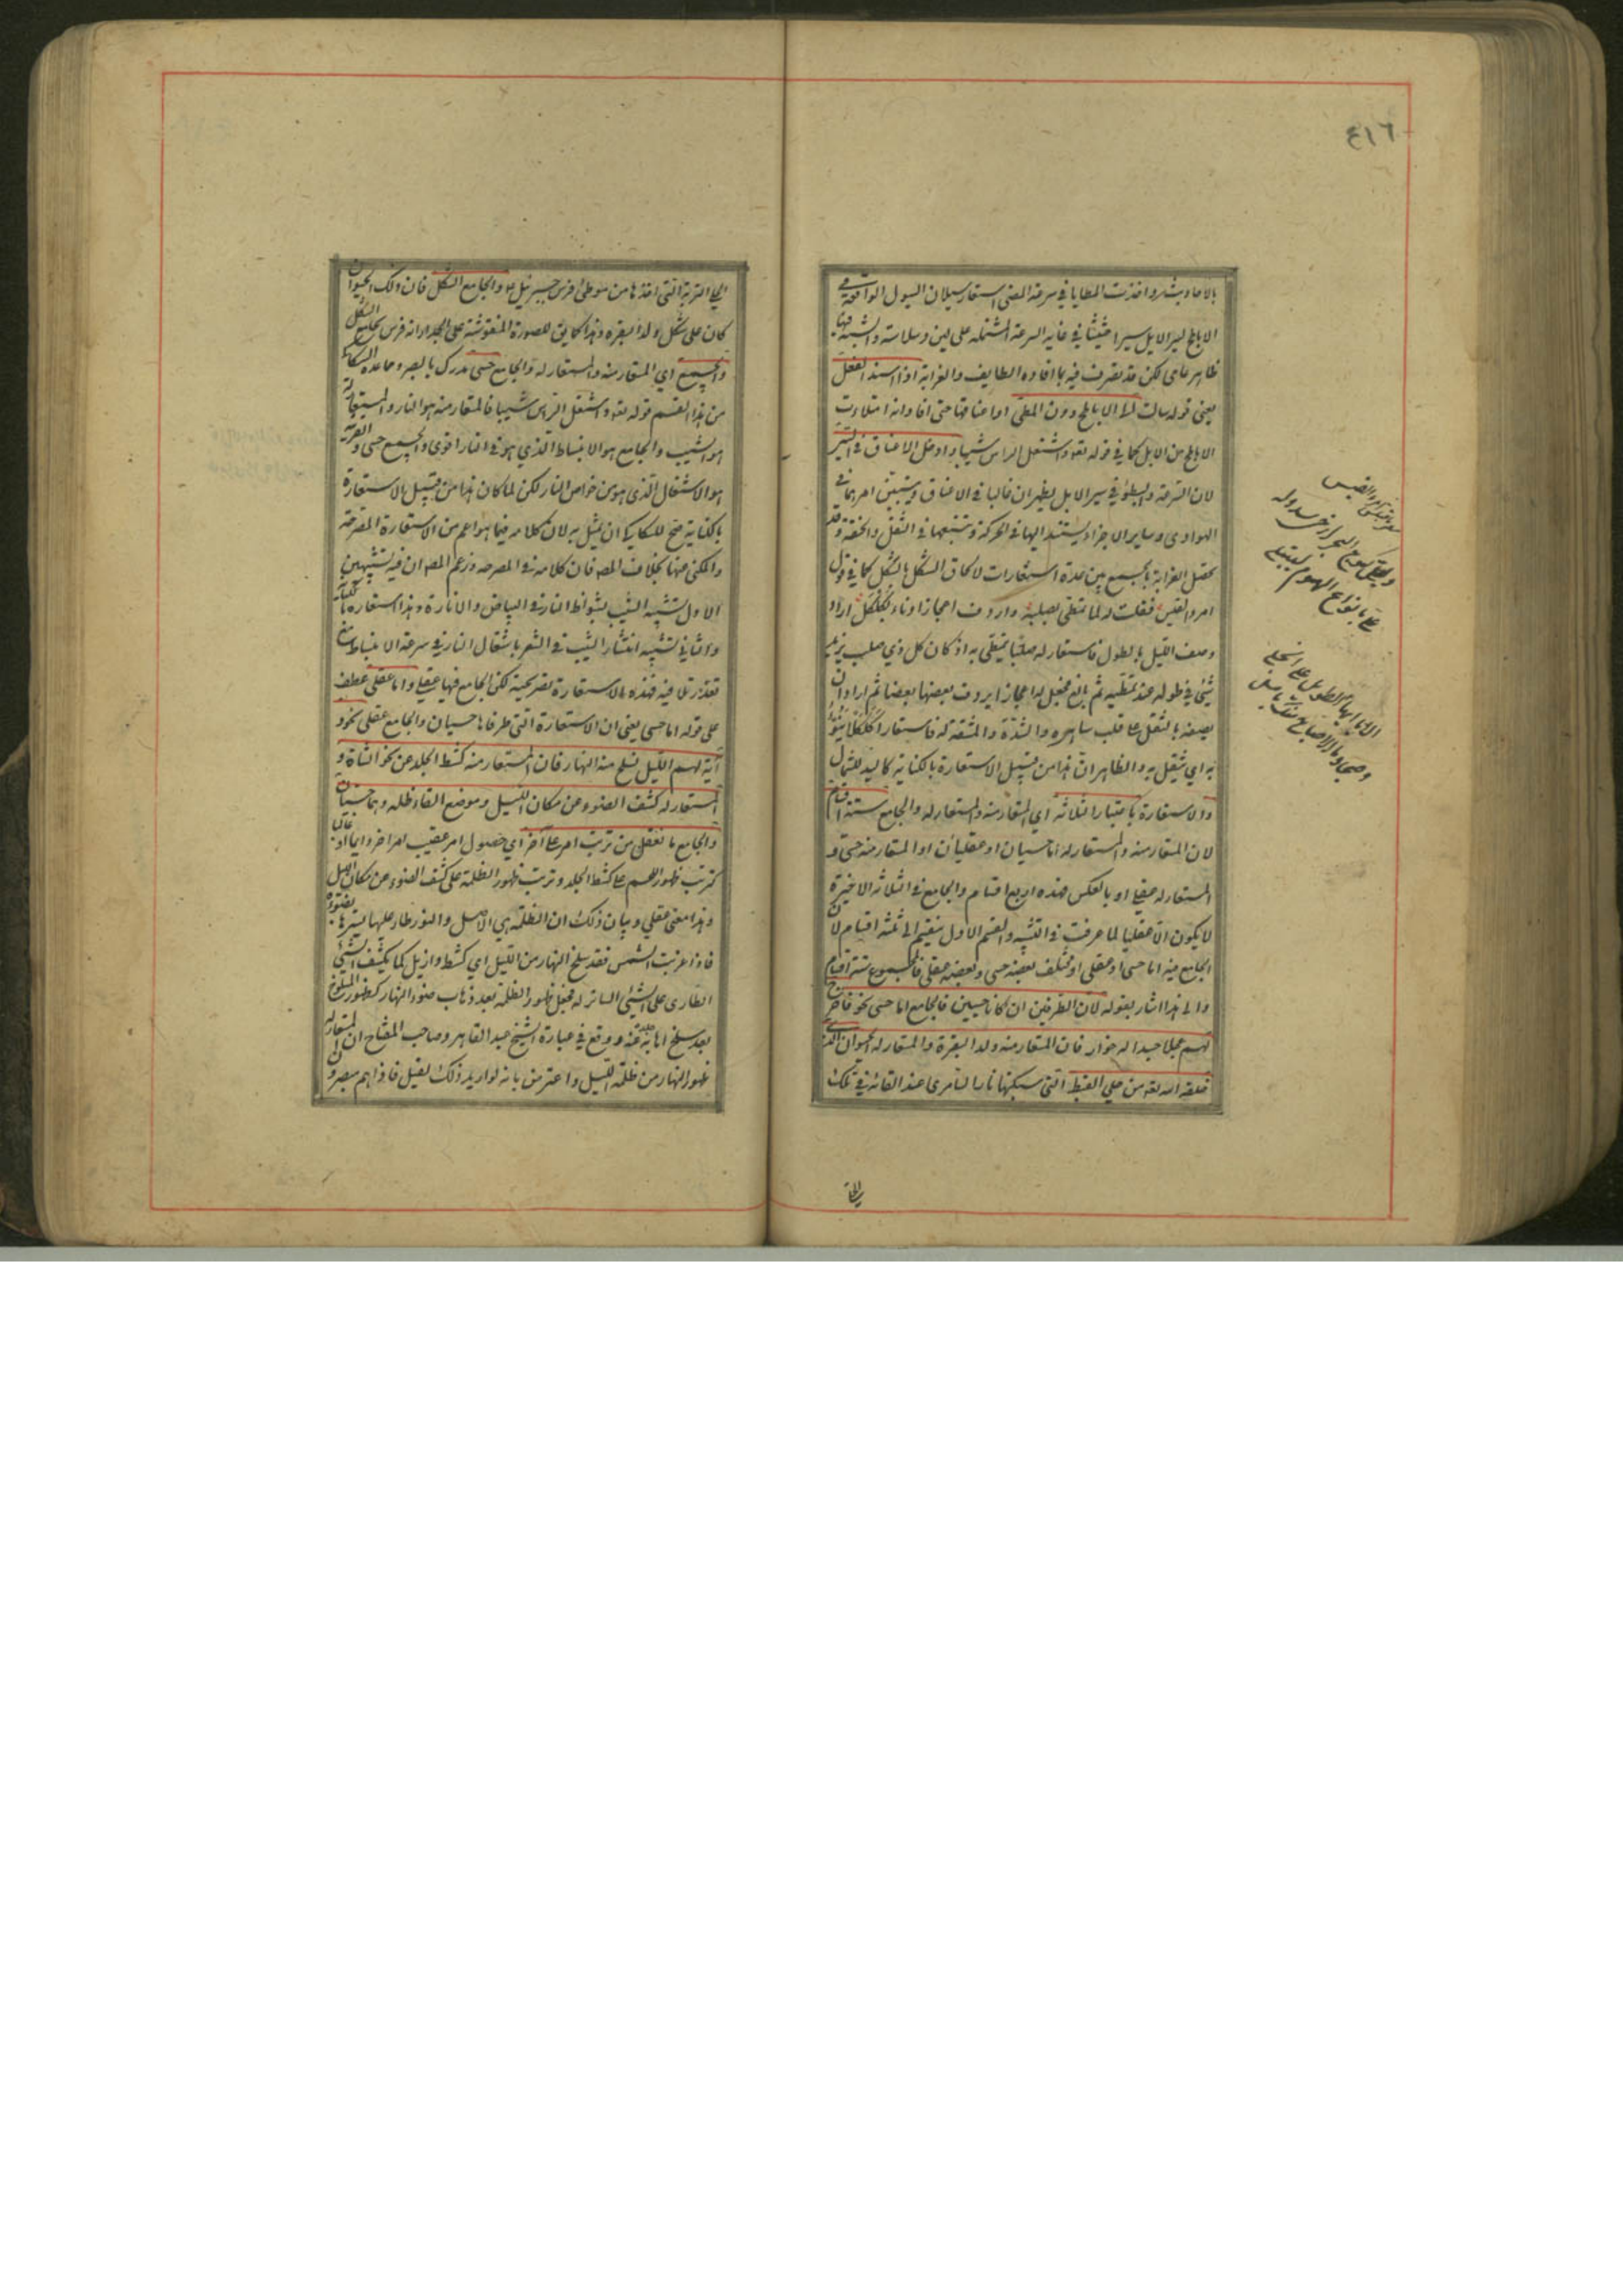 ٤١٦
بالاحاديث شدو اخذت المطايا في سرعة المضي استعار سيلان السيول الواقعة في
الاباطح لسير الابل سيرا حثيثا في غاية السرعة المشتملة على لين وسلاسة والشبه فيها
ظاهر عامي لكن قد تصرف فيه بما افاده اللطايف والغرابة اذ اسند الفعل
يعني قوله سالت الى الاباطح دون المطي او اعناقها حتى افاد انه امتلات
الاباطح من الابل كما في قوله تعه واشتعل الراس شيبا وادخل الاعناق في السير
لان السرعة والبطؤ في سير الابل يظهران غالبا في الاعناق ويتبين امرهما في
الهوادي وساير الاجزاء يستند اليها في الحركة وتتبعها في الثقل والخفة وقد
تحصل الغرابة بالجمع بين عدة استعارات لالحاق الشكل بالشكل كما في قول
امرء القيس فقلت له لما تمطى بصلبه واردف اعجازا وناء بكلكل اراد
وصف الليل بالطول فاستعار له صلبا يتمطى به اذ كان كل ذي صلب يزيد
شئ في طوله عند تمطيه ثم بالغ فجعل له اعجازا يردف بعضها بعضا ثم اراد ان
يصفه بالثقل على قلب ساهره والشدة والمشقة له فاستعار له كلكلا ينوء
به اي يثقل به والظاهر ان هذا من قبيل الاستعارة بالكناية كاليد للشمال
والاستعارة باعتبار الثلاثة اي المستعار منه والمستعار له والجامع ستة اقسام
لان المستعار منه والمستعار له اما حسيان او عقليان او المستعار منه حسي و
المستعار له عقلي او بالعكس فهذه اربع اقسام والجامع في الثلاثة الاخيرة
لا يكون الا عقليا لما عرفت في التشبيه والقسم الاول ينقسم الى ثلثة اقسام لان
الجامع فيه اما حسي او عقلي او مختلف بعضه حسي وبعضه عقلي فالمجموع ستة اقسام
والى هذا اشار بقوله لان الطرفين ان كانا حسيين فالجامع اما حسي نحو فاخرج
لهم عجلا جسدا له خوار فان المستعار منه ولد البقرة والمستعار له الحيوان الذي
خلقه الله تعه من حلي القبط التي سبكتها نار السامري عند القائه في تلك
الحلي
وليل كموج البحر ارخى سدوله
علي بانواع الهموم ليبتلي
الا ايها الليل الطويل الا انجلي
بصبح وما الاصباح منك بامثل
الحلي التربة التي اخذها من موطئ فرس جبرئيل ع م والجامع الشكل فان ذلك الحيوان
كان على شكل ولد البقره وهذا كما يق للصورة المنقوشة على الجدار انه فرس بجامع الشكل
والجميع اي المستعار منه والمستعار له والجامع حسي مدرك بالبصر ومما عده السكاكي
من هذا القسم قوله تعه واشتعل الراس شيبا فالمستعار منه هو النار والمستعار له
هو الشيب والجامع هو الانبساط الذي هو في النار اقوى والجميع حسي والقرينة
هو الاشتعال الذي هو من خواص النار لكن لما كان هذا من قبيل الاستعارة
بالكناية صح للسكاكي ان يمثل به لان كلامه فيما هو اعم من الاستعارة المصرحة
والمكني عنها بخلاف المصه فان كلامه في المصرحه وزعم المصه ان فيه تشبيهين
الاول تشبيه الشيب بشواظ النار في البياض والانارة وهذا استعارة بالكناية
والثاني تشبيه انتشار الشيب في الشعر باشتعال النار في سرعة الانبساط مع
تعذر تلافيه فهذه الاستعارة تصريحية لكن الجامع فيها عقلي واما عقلي عطف
على قوله اما حسي يعني ان الاستعارة التي طرفاها حسيان والجامع عقلي نحو و
آية لهم الليل نسلخ منه النهار فان المستعار منه كشط الجلد عن نحو الشاة و
المستعار له كشف الضوء عن مكان الليل وموضع القاء ظله وهما حسيان
والجامع ما يعقل من ترتب امر على آخر اي حصول امر عقيب امر اخر دايما او غالبا
كترتب ظهور اللحم على كشط الجلد وترتب ظهور الظلمة على كشف الضوء عن مكان الليل
وهذا معنى عقلي وبيان ذلك ان الظلمة هي الاصل والنور طار عليها يسترها بضوئه
فاذا غربت الشمس فقد سلخ النهار من الليل اي كشط وازيل كما يكشف الشئ
الطاري على الشئ الساتر له فجعل ظهور الظلمة بعد ذهاب ضوء النهار كظهور المسلوخ
بعد سلخ اهابه عنه ووقع في عبارة الشيخ عبد القاهر وصاحب المفتاح ان المستعار له
ظهور النهار من ظلمة الليل واعترض بانه لو اريد ذلك لقيل فاذا هم مبصرون